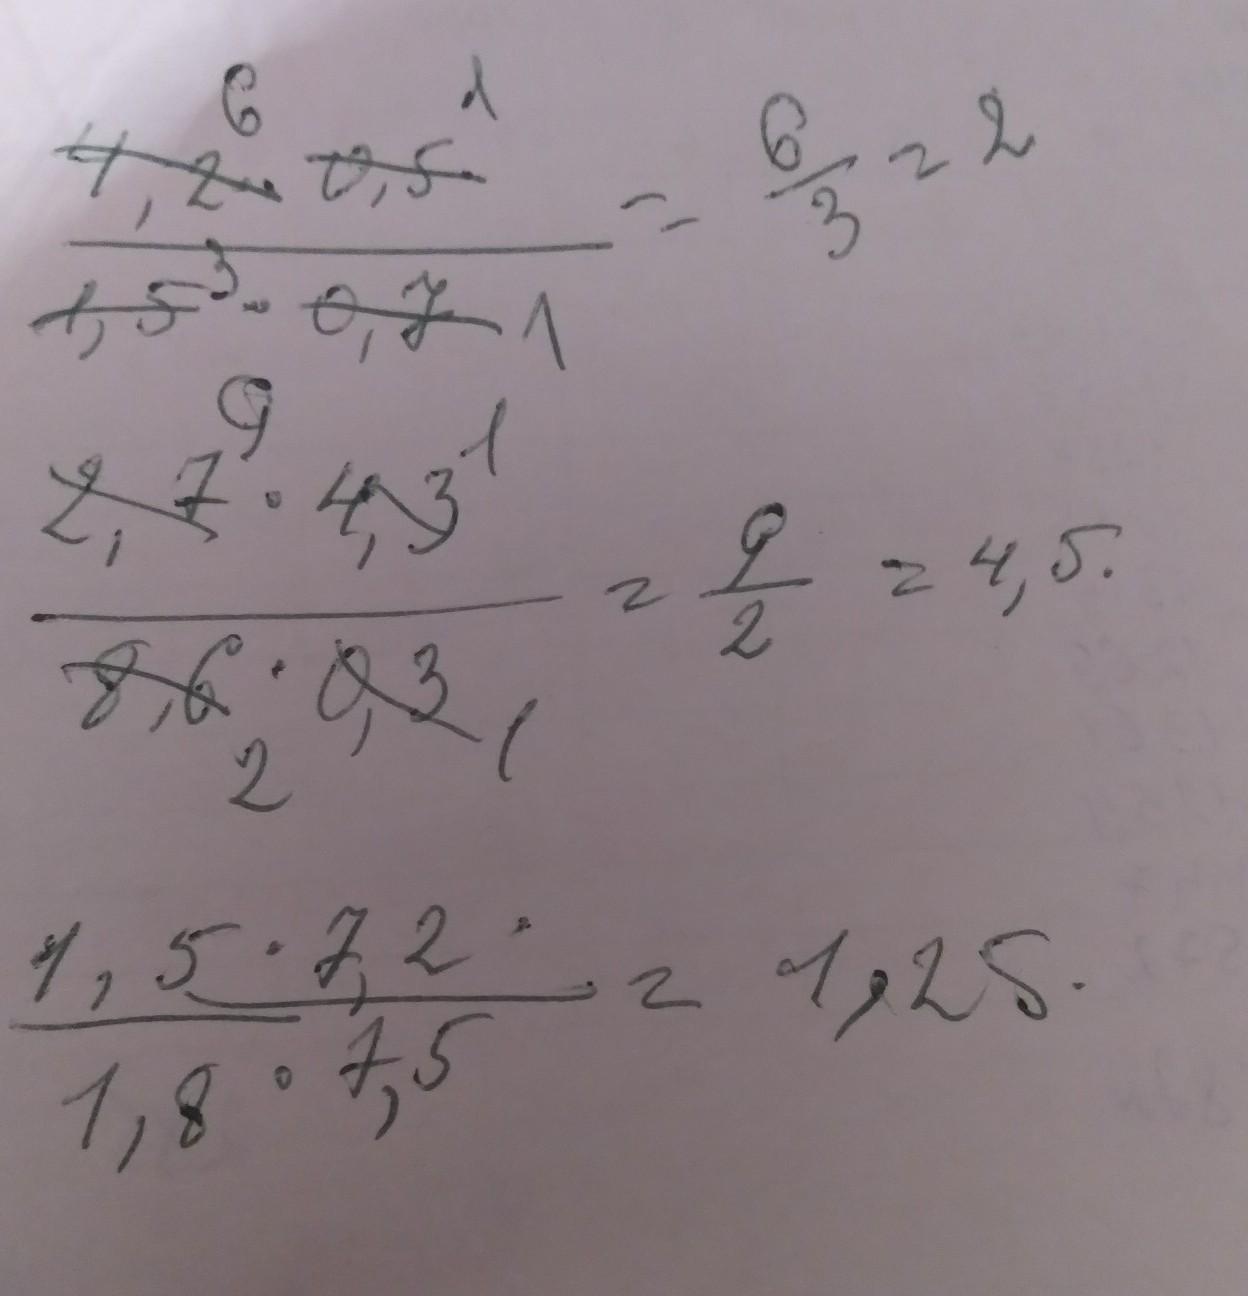 6 1
4,2 · 0,5
1,5 3 · 0,7 1 = 6/3 = 2
9 1
2,7 · 4,3
8,6 · 0,3 = 9/2 = 4,5.
2 1
1,5 · 7,2 ·
1,8 · 7,5 = 1,25.